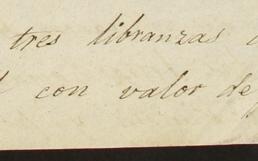 tres libranzas
con valor de